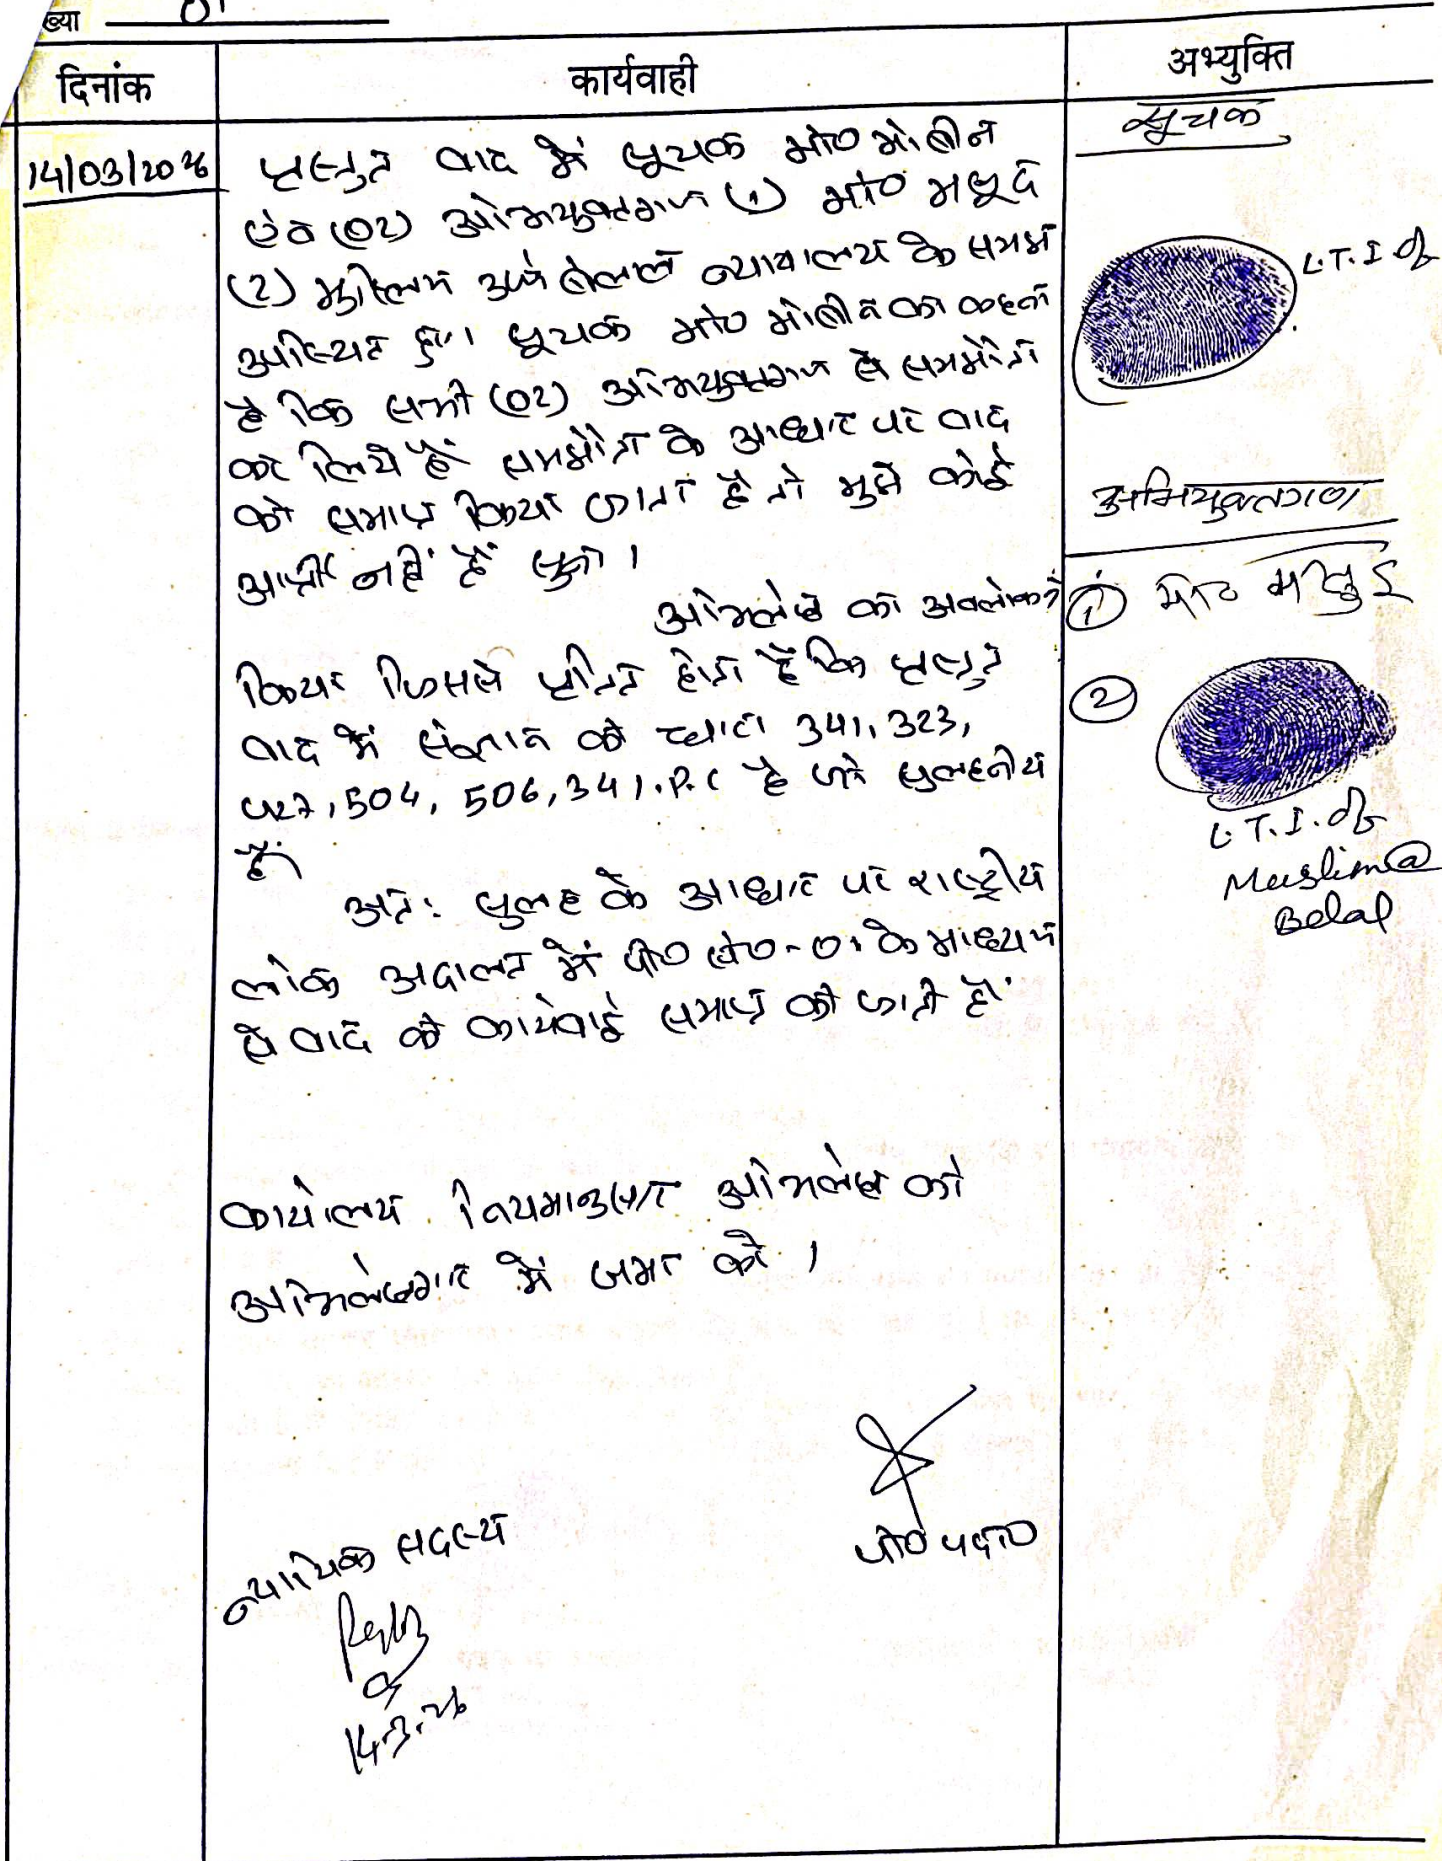 ख्या 01
दिनांक
कार्यवाही
अभ्युक्ति
14/03/2026
प्रस्तुत वाद में सूचक मो० मोबीन
एवं (02) अभियुक्तगण (1) मो० मसूद
(2) मुस्लिम उर्फ बेलाल न्यायालय के समक्ष
उपस्थित हुए। सूचक मो० मोबीन का कहना
है कि सभी (02) अभियुक्तगण से समझौता
कर लिये हैं समझौता के आधार पर वाद
को समाप्त किया जाता है तो मुझे कोई
आपत्ति नहीं है सुना।
अभिलेख का अवलोकन
किया जिससे प्रतीत होता है कि प्रस्तुत
वाद में संज्ञान की धारा 341, 323,
427, 504, 506, 34 I.P.C है जो सुलहनीय
है।
अतः सुलह के आधार पर राष्ट्रीय
लोक अदालत में पी० सं०-01 के माध्यम
से वाद की कार्यवाही समाप्त की जाती है।
कार्यालय नियमानुसार अभिलेख को
अभिलेखागार में जमा करें।
न्यायिक सदस्य
14.3.26
सूचक
L.T.I of
अभियुक्तगण
① मो० मसूद
②
L.T.I. of
Muslim @
Belal